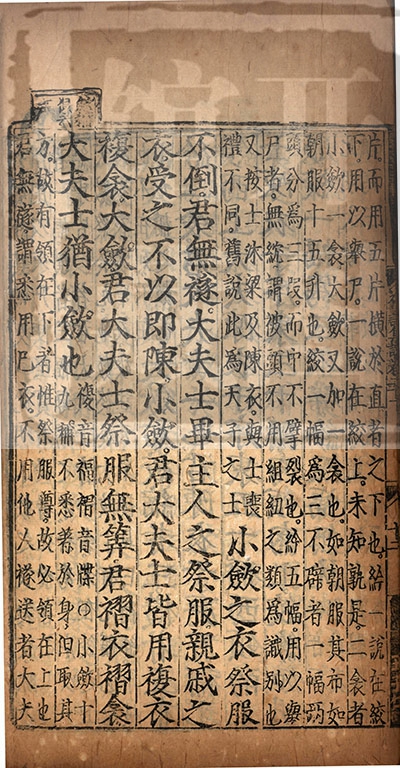 片而用五片橫於直者之下也紟一說在絞
下用以舉尸一說在絞上未知孰是二衾者
小斂一衾大斂又加一衾也如朝服其布如
朝服十五升也絞一幅爲三不辟者一幅兩
頭分爲三段而中不擘裂也紟五幅用以舉
尸者無紞謂被頭不用組紐之類爲識別也
又按士沐粱及陳衣與士喪
禮不同舊說此爲天子之士
小斂之衣祭服
不倒君無襚大夫士畢主人之祭服親戚之
衣受之不以即陳小斂君大夫士皆用複衣
複衾大斂君大夫士祭服無筭君褶衣褶衾
大夫士猶小斂也
複音福褶音牒○小斂十
九稱不悉著於身但取其
方故有領在下者惟祭服尊故必領在上也
君無襚謂悉用己衣不用他人襚送者大夫